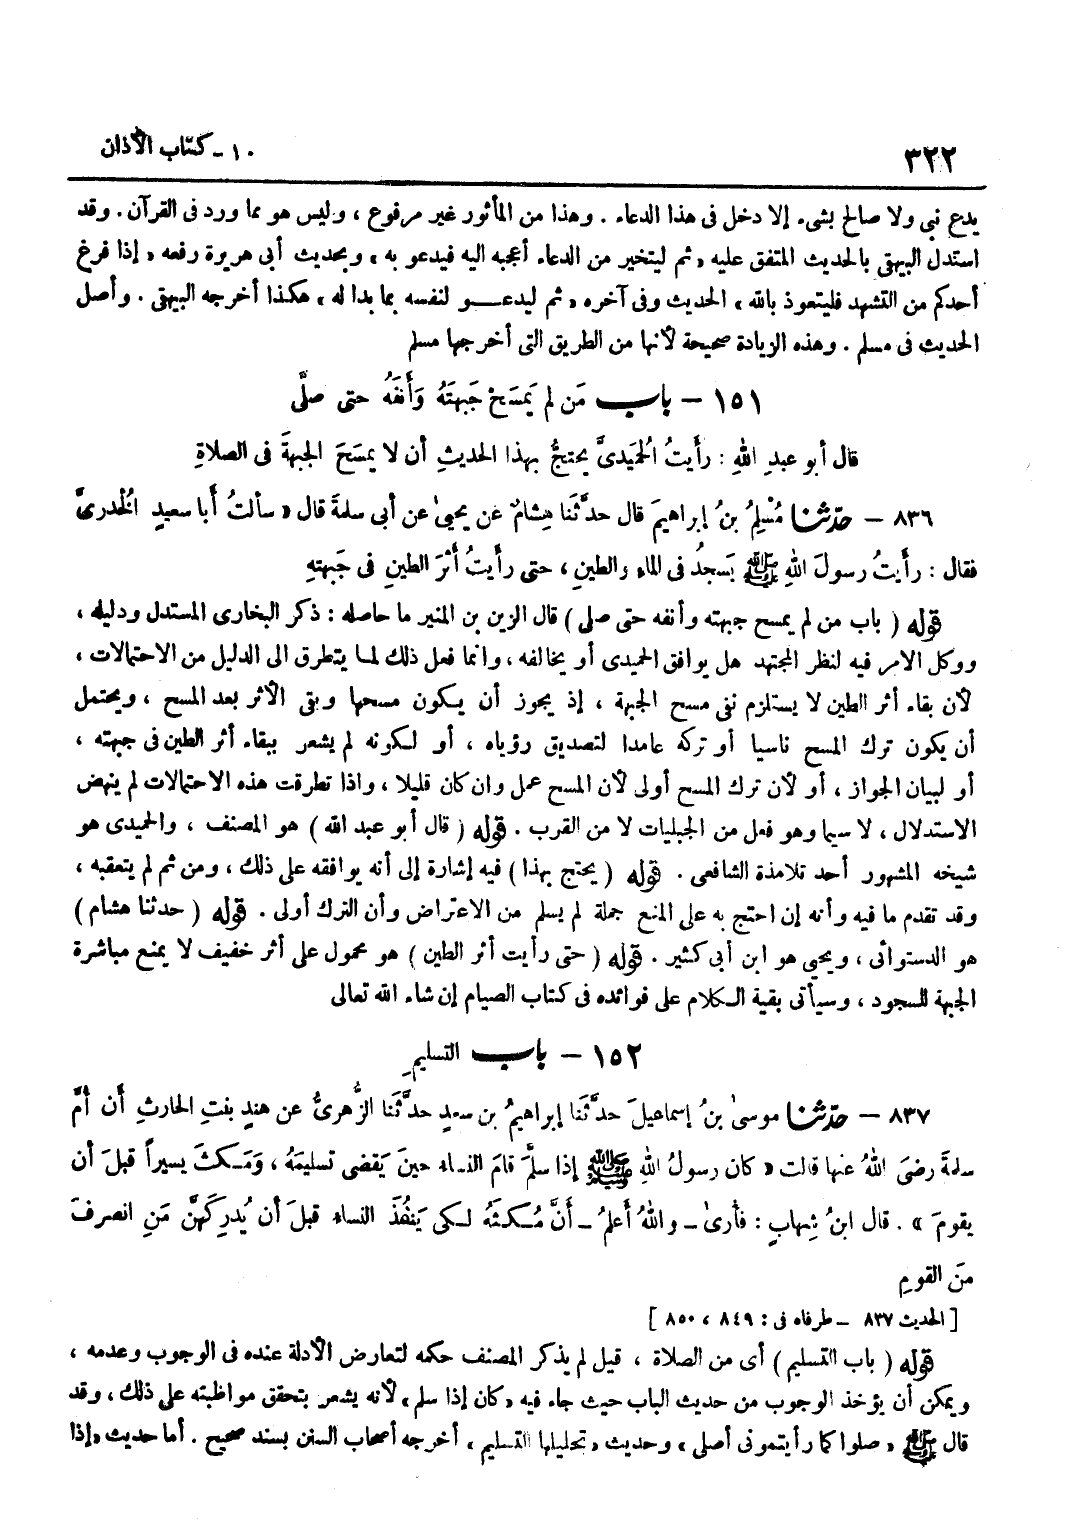 ٣٢٢
١٠ - كتاب الأذان
يدع نبى ولا صالح بشىء إلا دخل فى هذا الدعاء . وهذا من المأثور غير مرفوع ، وليس هو مما ورد فى القرآن . وقد
استدل البيهقى بالحديث المتفق عليه « ثم ليتخير من الدعاء أعجبه اليه فيدعو به » وبحديث أبى هريرة رفعه « إذا فرغ
أحدكم من التشهد فليتعوذ بالله » الحديث وفى آخره « ثم ليدعو لنفسه بما بدا له » هكذا أخرجه البيهقى . وأصل
الحديث فى مسلم . وهذه الزيادة صحيحة لأنها من الطريق التى أخرجها مسلم
١٥١ - باب مَن لم يَمسَحْ جَبهتَهُ وَأنفَهُ حتى صلَّى
قال أبو عبدِ اللهِ : رأيتُ الُحمَيدىَّ يحتجُّ بهذا الحديثِ أن لا يمسَحَ الجبهةَ فى الصلاةِ
٨٣٦ - حدّثنا مُسْلِمُ بنُ إبراهيمَ قال حدَّثَنا هِشامٌ عَن يحيىٰ عن أبى سلمةَ قال « سألتُ أبا سعيدٍ الُخدرىَّ
فقال : رأيتُ رسولَ اللهِ ﷺ يَسجدُ فى الماءِ والطينِ ، حتى رأيتُ أثرَ الطينِ فى جَبهتهِ
قوله ( باب من لم يمسح جبهته وأنفه حتى صلى ) قال الزين بن المنير ما حاصله : ذكر البخارى المستدل ودليله ،
ووكل الامر فيه لنظر المجتهد هل يوافق الحميدى أو يخالفه ، وانما فعل ذلك لما يتطرق الى الدليل من الاحتمالات ،
لأن بقاء أثر الطين لا يستلزم نفى مسح الجبهة ، إذ يجوز أن يكون مسحها وبقى الأثر بعد المسح ، ويحتمل
أن يكون ترك المسح ناسيا أو تركه عامدا لتصديق رؤياه ، أو لكونه لم يشعر ببقاء أثر الطين فى جبهته ،
أو لبيان الجواز ، أو لأن ترك المسح أولى لأن المسح عمل وان كان قليلا ، واذا تطرقت هذه الاحتمالات لم ينهض
الاستدلال ، لا سيما وهو فعل من الجبليات لا من القرب . قوله ( قال أبو عبد الله ) هو المصنف ، والحميدى هو
شيخه المشهور أحد تلامذة الشافعى . قوله ( يحتج بهذا ) فيه إشارة إلى أنه يوافقه على ذلك ، ومن ثم لم يتعقبه ،
وقد تقدم ما فيه وأنه إن احتج به على المنع جملة لم يسلم من الاعتراض وأن الترك أولى . قوله ( حدثنا هشام )
هو الدستوائى ، ويحيى هو ابن أبى كثير . قوله ( حتى رأيت أثر الطين ) هو محمول على أثر خفيف لا يمنع مباشرة
الجبهة للسجود ، وسيأتى بقية الكلام على فوائده فى كتاب الصيام إن شاء الله تعالى
١٥٢ - باب التسليمِ
٨٣٧ - حدّثنا موسىٰ بنُ إسماعيلَ حدَّثَنا إبراهيمُ بن سعدٍ حدَّثَنا الزُّهرىُّ عن هندٍ بنتِ الحارثِ أن أمَّ
سلمةَ رضىَ اللهُ عنها قالت « كان رسولُ اللهِ ﷺ إذا سلَّمَ قامَ النساءُ حينَ يَقضى تسليمَهُ ، وَمَكثَ يسيراً قبلَ أن
يقومَ » . قال ابنُ شِهابٍ : فأُرىٰ - واللهُ أعلمُ - أنَّ مُكثَهُ لكى يَنفُذَ النساءُ قبلَ أن يُدرِكَهنَّ مَنِ انصرفَ
منَ القومِ
[ الحديث ٨٣٧ - طرفاه فى : ٨٤٩ ، ٨٥٠ ]
قوله ( باب التسليم ) أى من الصلاة ، قيل لم يذكر المصنف حكمه لتعارض الأدلة عنده فى الوجوب وعدمه ،
ويمكن أن يؤخذ الوجوب من حديث الباب حيث جاء فيه « كان إذا سلم » لأنه يشعر بتحقق مواظبته على ذلك ، وقد
قال ﷺ « صلوا كما رأيتمونى أصلى » وحديث « تحليلها التسليم » أخرجه أصحاب السنن بسند صحيح . أما حديث « إذا